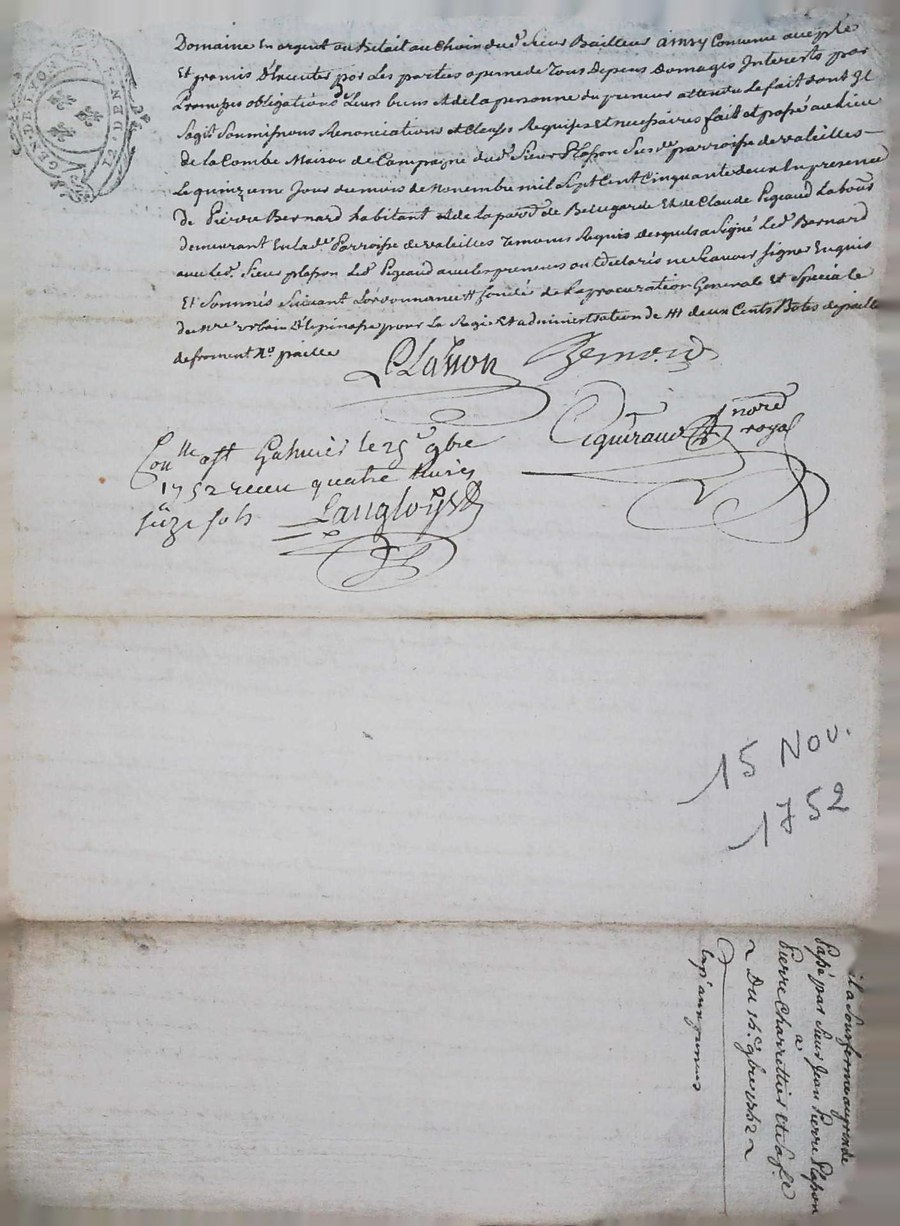 GEN. DE LYON
Domaine En argent ou Betail au Choix dud. sieur Bailleur ainsy Convenu accepté
Et promis D'Executer par Les parties a peine de Tous Depens Domages Interests par
Les obligations de Leurs biens et de la personne du preneur attendu Le fait dont Il
sagit Soumissions Renonciations et Clauses Requises Et necessaires fait et passé au Lieu
de la Combe Maison de Campagne dud. Sieur Plasson Susd. parroisse de valeilles
Le quinzieme Jour du mois de Novembre mil Sept Cent Cinquante deux En presence
De Pierre Bernard habitant de la parr. de Bellegarde Et de Claude Pigeaud Labour
demeurant En lad. Parroisse de valeilles Temoins Requis desquels a Signé Led. Bernard
avec led. Sieur plasson Led. Pigeaud avec les preneurs ont declarés ne Scavoir signer Enquis
Et Sommés Suivant L'ordonnance fondé de La procuration Generale Et Speciale
de pour La Regie Et administration de deux Cents Botes de paille
de froment paille
Plasson Bernard
not.re royal
Con.lle a St Galmier le 25e 9bre
1752 receu quatre livres
seize sols Langloys
15 Nov.
1752
Sousferme
Passé par Sieur Jean Pierre Plasson
a
Pierre Charrettier et sa f.e
Du 15e 9bre 1752